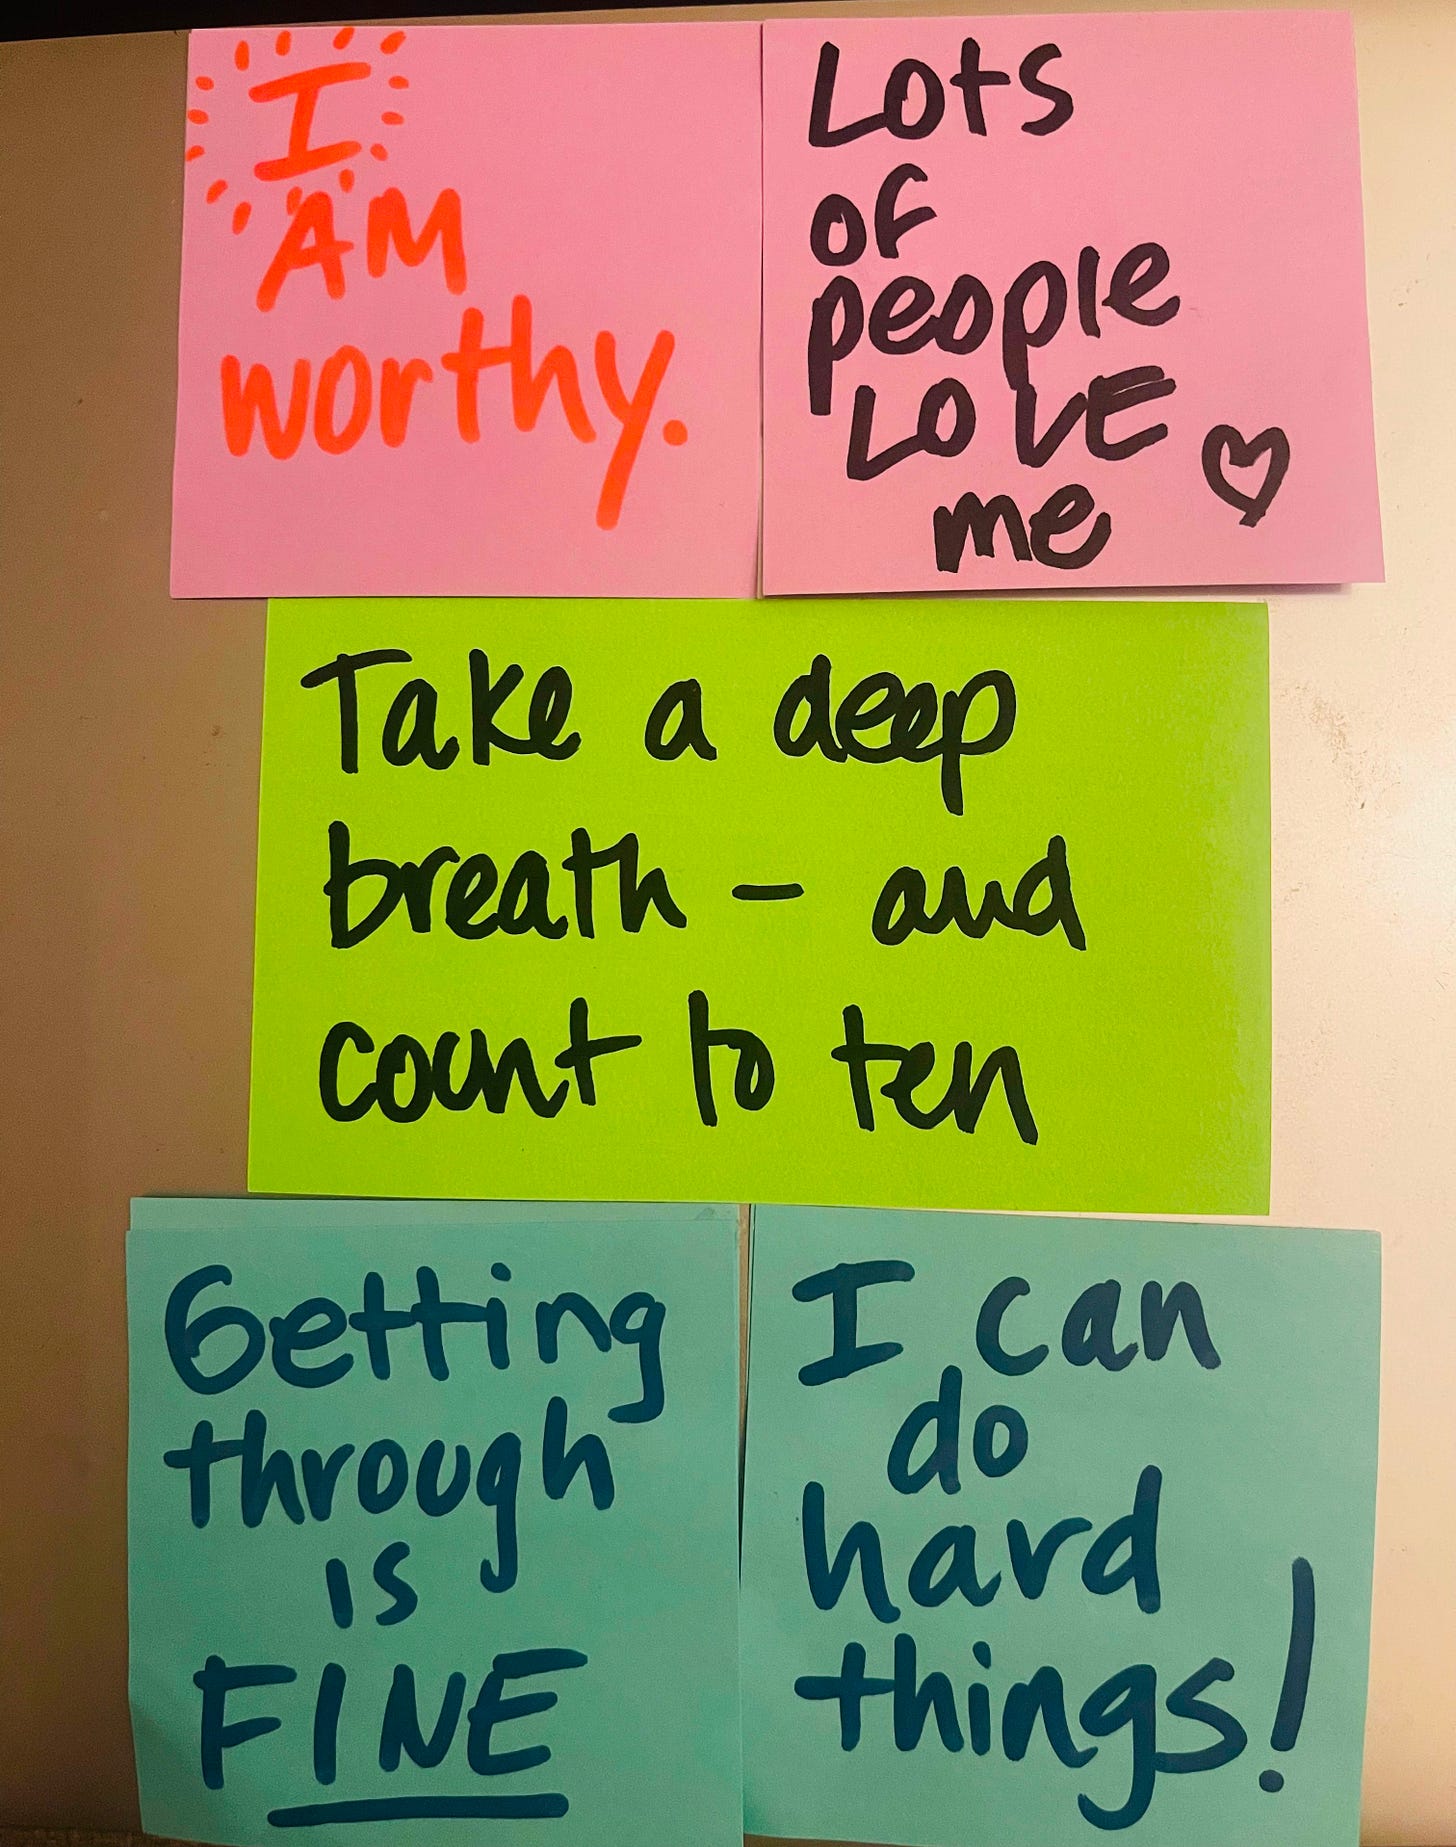 I
AM
worthy.
Lots
of
people
LOVE
me
Take a deep
breath - and
count to ten
Getting
through
is
FINE
I can
do
hard
things!